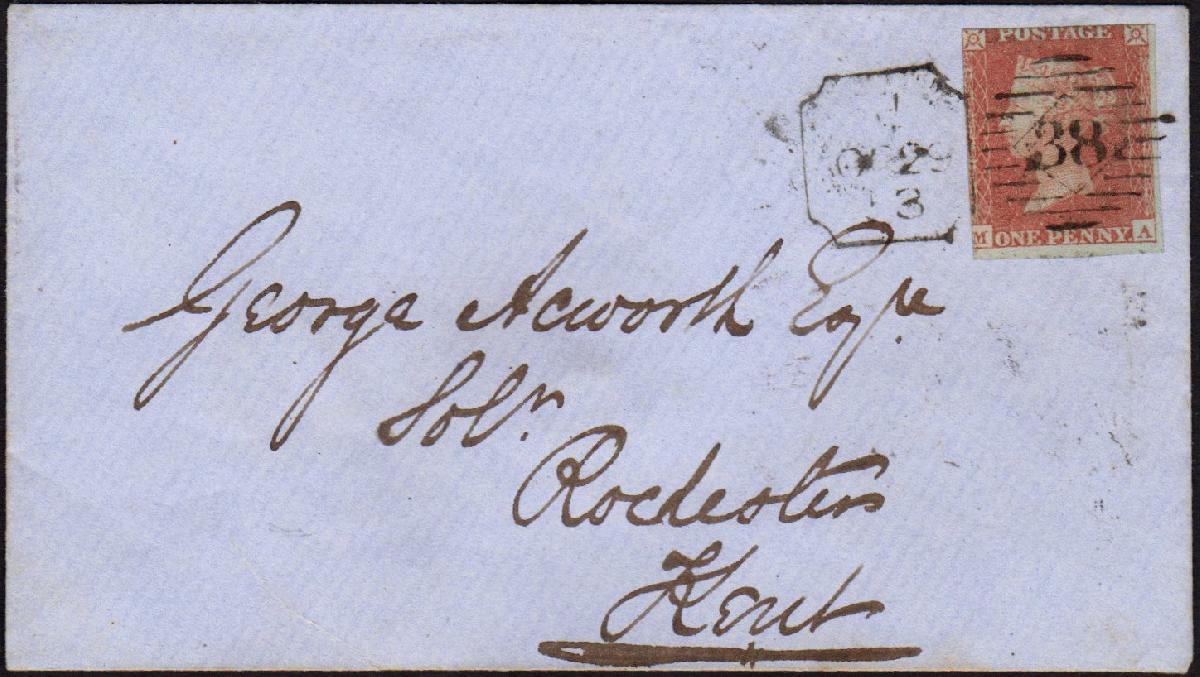 POSTAGE
38
M ONE PENNY A
29
3
George Acworth Esqre
Solr
Rochester
Kent